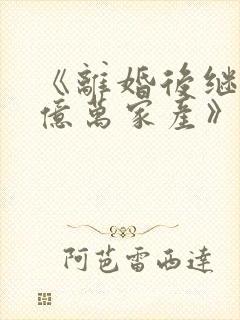 《離婚後继
億萬家產》
阿芭雷西達